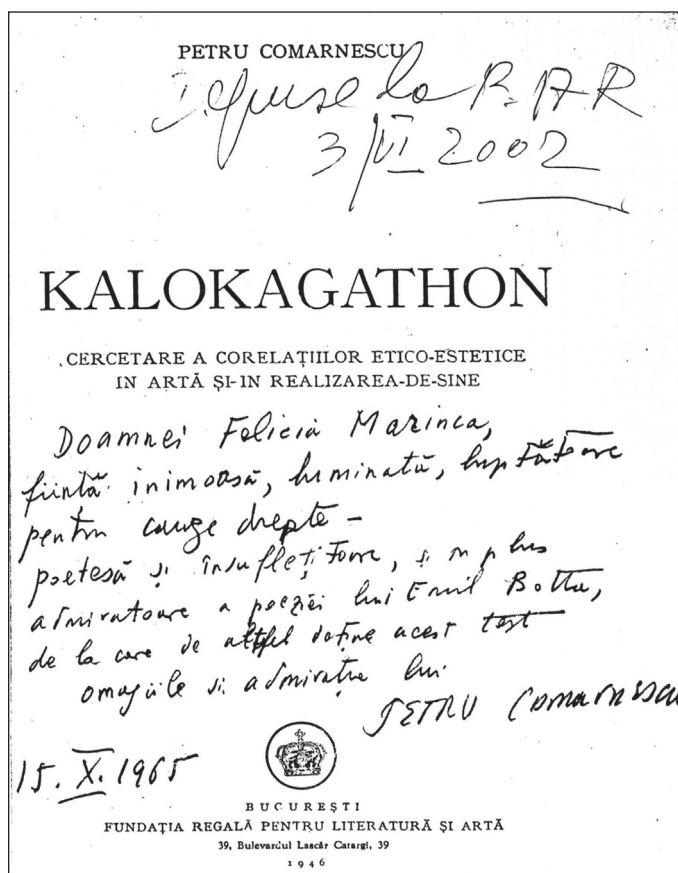 PETRU COMARNESCU
Depuse la B.A.R
3/VI 2002
KALOKAGATHON
CERCETARE A CORELAȚIILOR ETICO-ESTETICE
IN ARTĂ ȘI-IN REALIZAREA-DE-SINE
Doamnei Felicia Marinca,
ființă inimoasă, luminată, luptătoare
pentru cauze drepte -
poetesă și însuflețitoare, și în plus
admiratoare a poeziei lui Emil Botta,
de la care de altfel dețíne acest text
omagiile și admirație lui
PETRU Comarnescu
15. X. 1965
BUCUREȘTI
FUNDAȚIA REGALĂ PENTRU LITERATURĂ ȘI ARTĂ
39, Bulevardul Lascăr Catargi, 39
1946